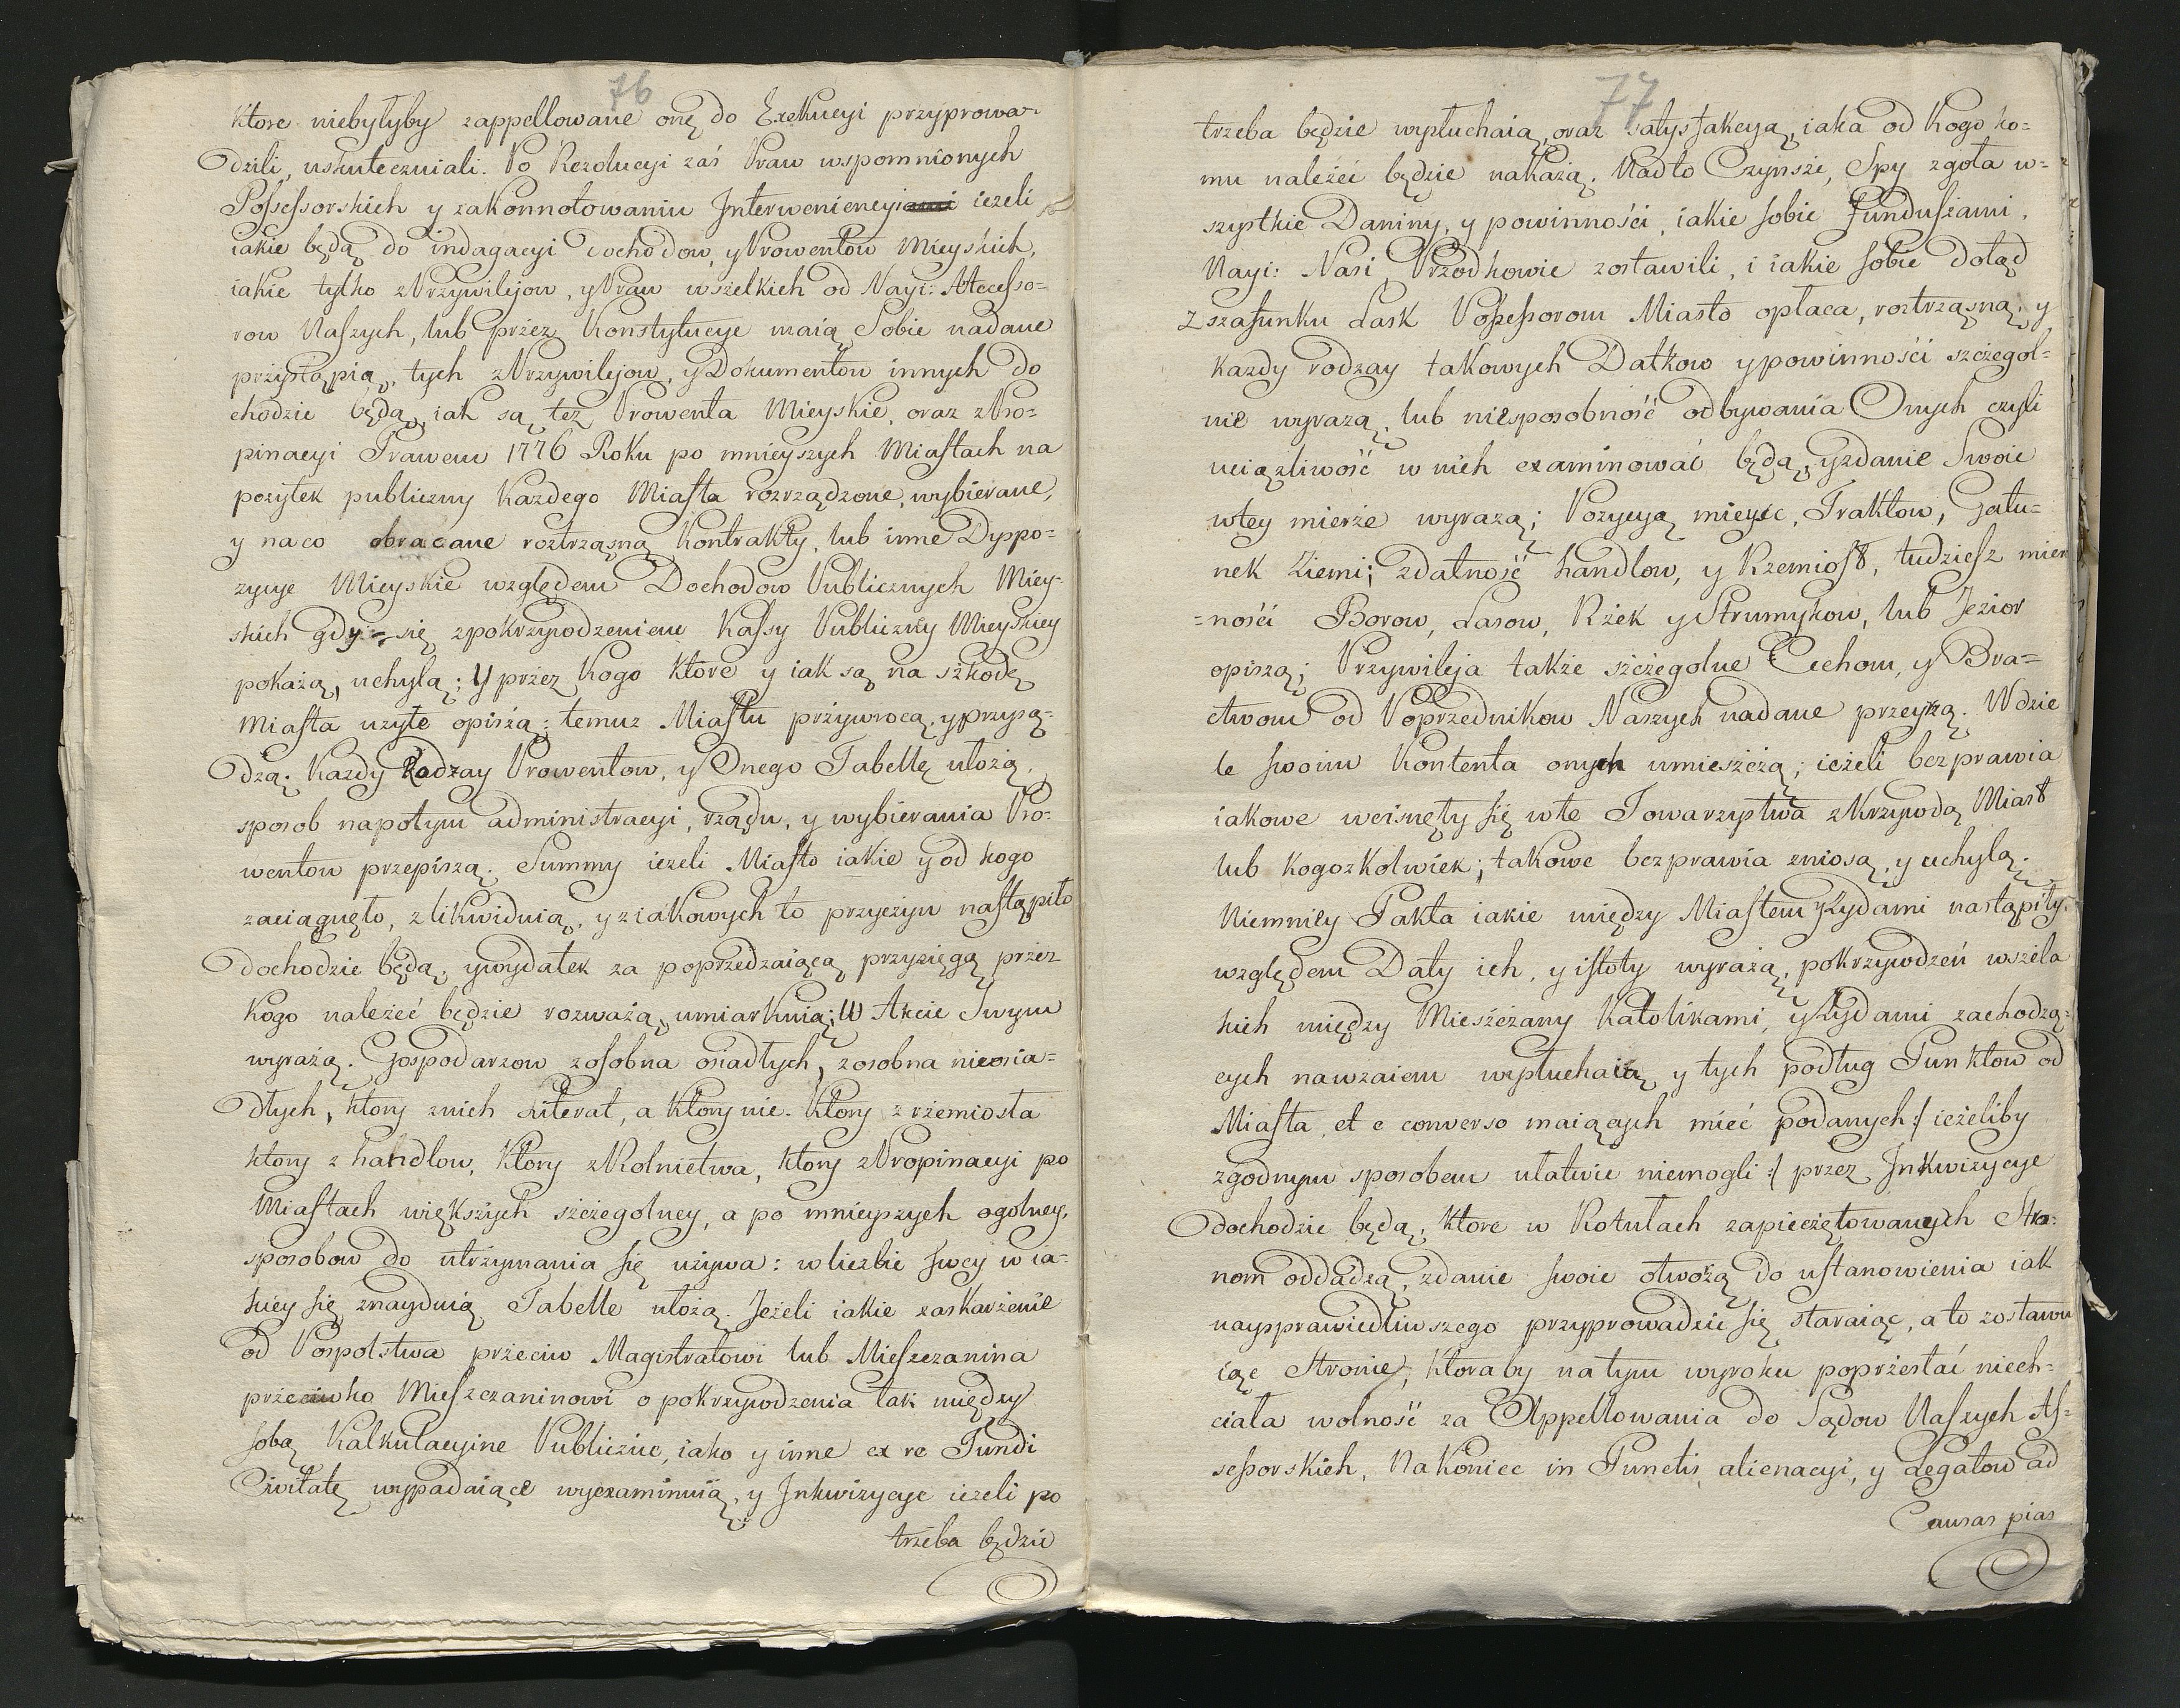 76
ktore niebyłyby zappellowane onę do Exekucyi przyprowa-
dzili, uskuteczniali. Po Rezolucyi zaś Praw wspomnionych
Possessorskich y zakonnotowaniu Interweniencyi iezeli
iakie będą do indagacyi dochodow, y Prowentow Mieyskich,
iakie tylko z Przywilejow, y Praw wszelkich od Nayi: Antecesso=
row Naszych, lub przez Konstytucye maią Sobie nadane
przystąpią, tych z Przywilejow, y Dokumentow innych do
chodzic będą, iak są też Prowenta Mieyskie, oraz z Pro=
pinacyi Prawem 1776 Roku po mnieyszych Miastach na
pozytek publiczny Kazdego Miasta rozrządzone, wybierane,
y naco obracane roztrząsną Kontrakty, lub inne Dyspo=
zycye Mieyskie względem Dochodow Publicznych Miey-
skich gdy się zpokrzywdzeniem Kassy Publiczney Mieyskiey
pokażą, uchylą; y przez Kogo ktore y iak są na szkodę
Miasta uzyte opiszą; temuz Miastu przywrocą, y przysą=
dzą. Kazdy Rodzay Prowentow, y Onego Tabellę ułożą,
sposob napotym administracyi, rządu, y wybierania Pro=
wentow przepiszą. Summy iezeli Miasto iakie y od kogo
zaciągnęło, zlikwiduią, y ziakowych to przyczyn nastąpiło
dochodzic będą, y wydatek za poprzedzaiącą przysięgą przez
Kogo należeć będzie rozważą, umiarkuią; W Akcie Swym
wyrażą. Gospodarzow zosobna osiadłych, zosobna nieosia=
dłych, ktory znich Literat, a Ktory nie. Ktory z rzemiosła
ktory z handlow, Ktory z Rolnictwa, ktory z Propinacyi po
Miastach większych szczegolney, a po mnieyszych ogolney,
sposobow do utrzymania się używa: w liczbie swey w ia-
kiey się znayduią Tabelle ułożą. Jeżeli iakie zaskarżenie
od Pospolstwa przeciw Magistratowi lub Mieszczanina
przeciwko Mieszczaninowi o pokrzywdzenia tak między
sobą Kalkulacyine Publiczne, iako y inne ex re Fundi
Civitatę wypadaiące wyexaminuią, y Inkwizycye iezeli po
trzeba będzie
77
trzeba będzie wysłuchaią, oraz satysfakcyą, iaka od Kogo ko=
mu należéć będzie nakażą. Nadto Czynsze, Spy zgoła w=
szystkie Daniny, y powinności, iakie sobie Funduszami,
Nayi: Nasi Przodkowie zostawili, i iakie sobie dotąd
Zszafunku Łask Possessorom Miasto opłaca, roztrząsną, y
kazdy rodzay takowych Datkow y powinności szczegol=
nie wyrazą, lub niesposobność odbywania Onych czyli
uciązliwość w nich examinować będą, y zdanie Swoie
wtey mierże wyrazą; Pozycyą mieysc, Traktow, Gatu=
nek Ziemi; zdatność handlow, y Rzemiosł, tudziesz mier
=ności Borow, Lasow, Rżek y Strumykow, lub Jezior
opiszą; Przywileja także szczegolne Cechom, y Bra=
ctwom od Poprzednikow Naszych nadane przeyrzą. W dzie
le swoim Kontenta onych umieszczą; ieżeli bezprawia
iakowe wcisnęły się w te Towarzystwa z Krzywdą Miast
lub kogozkolwiek; takowe bezprawia zniosą, y uchylą.
Niemniey Pakta iakie między Miastem y Zydami nastąpiły,
względem Daty ich, y istoty wyrażą, pokrzywdzeń wszela
kich między Mieszczany Katolikami, y Zydami zachodzą=
cych nawzaiem wysłuchaią y tych podług Punktow od
Miasta, et e converso maiących mieć podanych :/ ieżeliby
zgodnym sposobem ułatwic niemogli :/ przez Inkwizycye
dochodzic będą; ktore w Rotułach zapieczętowanych Stro=
nom oddadzą, zdanie swoie otworżą do ustanowienia iak
naysprawiedliwszego przyprowadzic się staraiąc, a to zostawu
iąc Stronie, ktoraby na tym wyroku poprzestać niech=
ciała wolność za Appellowania do Sądow Naszych As=
sessorskich, Nakoniec in Punctis alienacyi, y Legatow ad
Causas pias